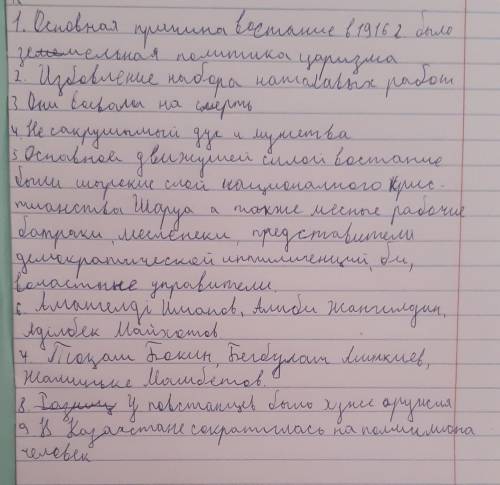 1. Основная причина востание в 1916 г было
земельная политика царизма
2. Избовление набора на тыловых работ
3. Они воевали на смерть
4. Несакрушимый дух и мужества
5 Основной движушей силой востание
были шырокие слой националного крис-
тианства Шаруа а также месные рабочие
батраки, меслепеки, представители
демократической интилигенций, би,
воластные управители.
6. Амангелді Иманов, Алиби Жангилдин,
Әділбек Майкотов
7. Тоқаш Бокин, Бекбулат Ашикиев,
Жаминке Мамбетов.
8. У повстанцев было хуже оружия
9 В Казахстане сократилась на полмилиона
человек